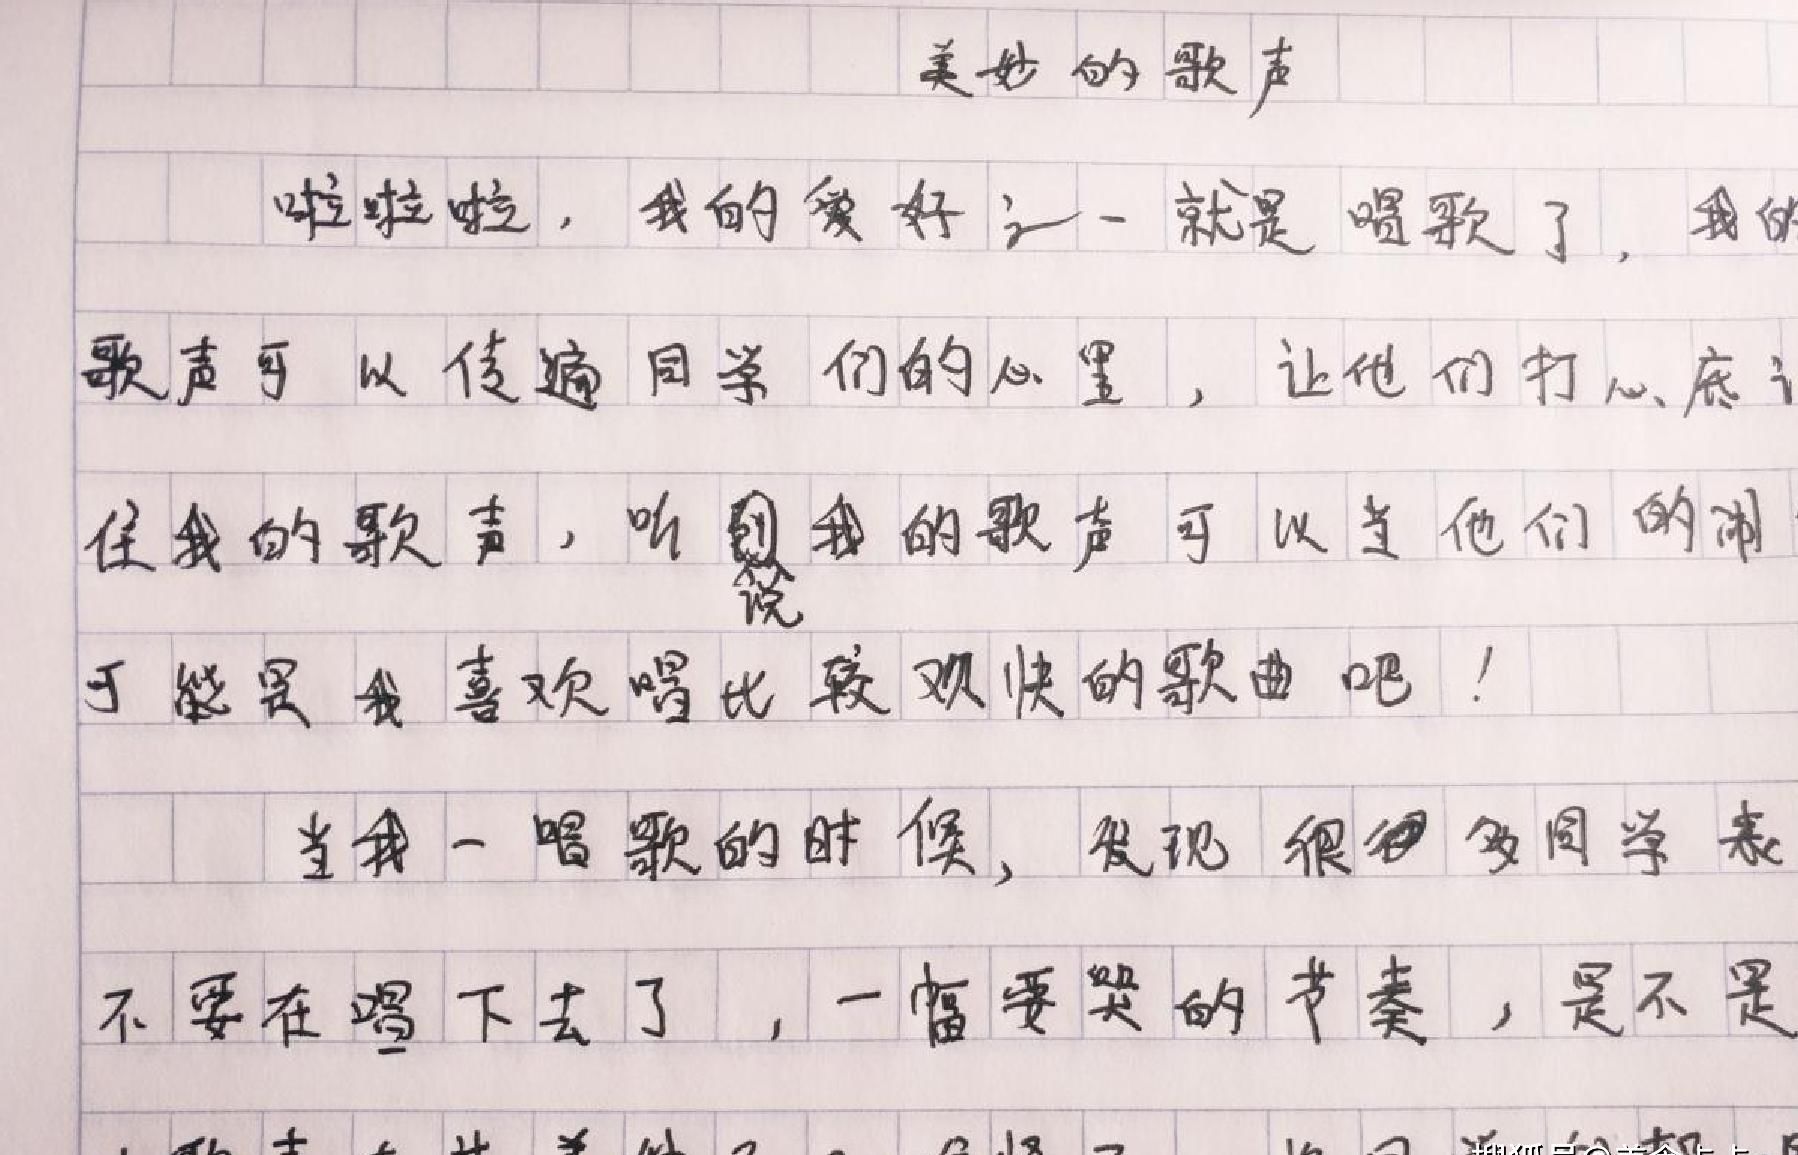 美妙的歌声
啦啦啦,我的爱好之一就是唱歌了,我的
歌声可以传遍同学们的心里,让他们打心底
住我的歌声,听说我的歌声可以当他们的闹
可能是我喜欢唱比较欢快的歌曲吧!
当我一唱歌的时候,发现很多同学表
不要在唱下去了,一幅要哭的节奏,是不是